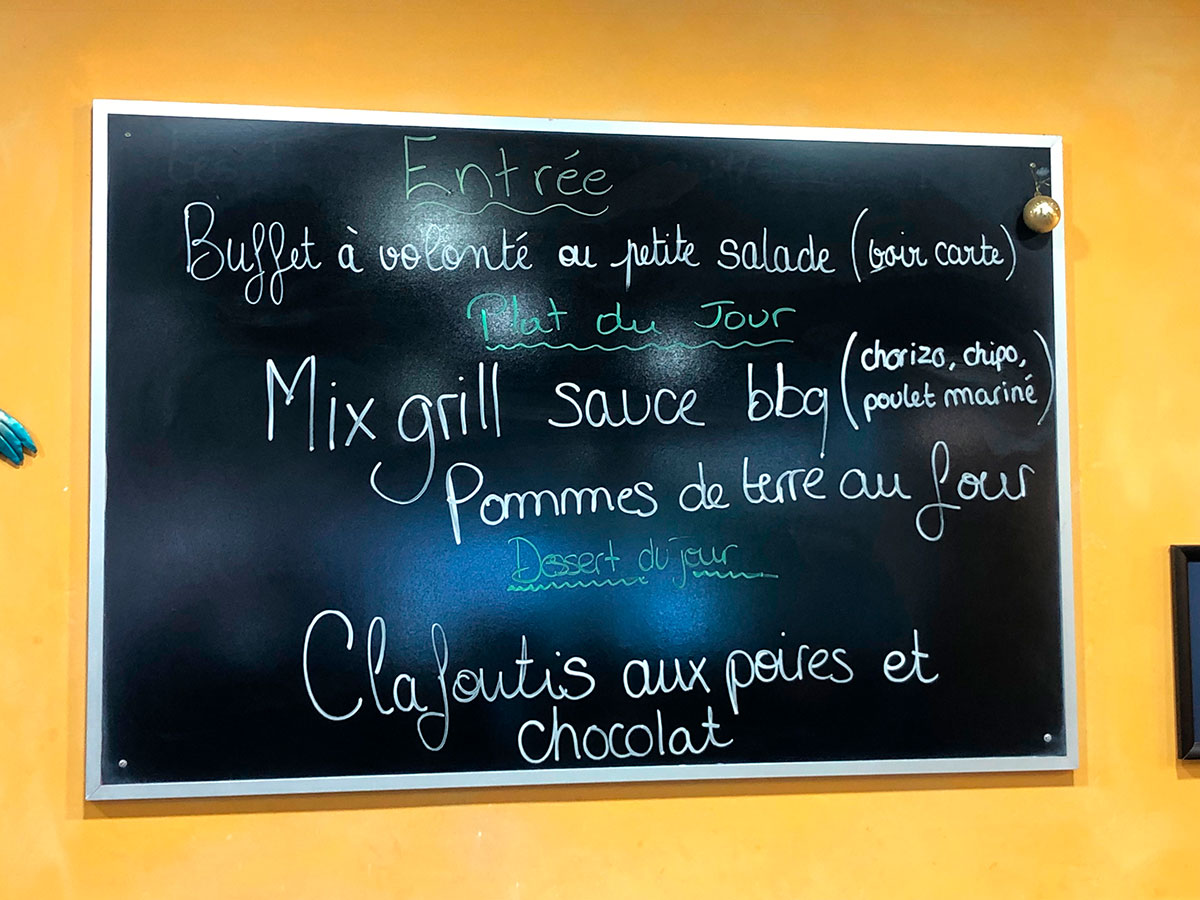 Entrée
Buffet à volonté ou petite salade (voir carte)
Plat du Jour
Mix grill sauce bbq (chorizo, chipo,
poulet mariné)
Pommes de terre au four
Dessert du jour
Clafoutis aux poires et
chocolat